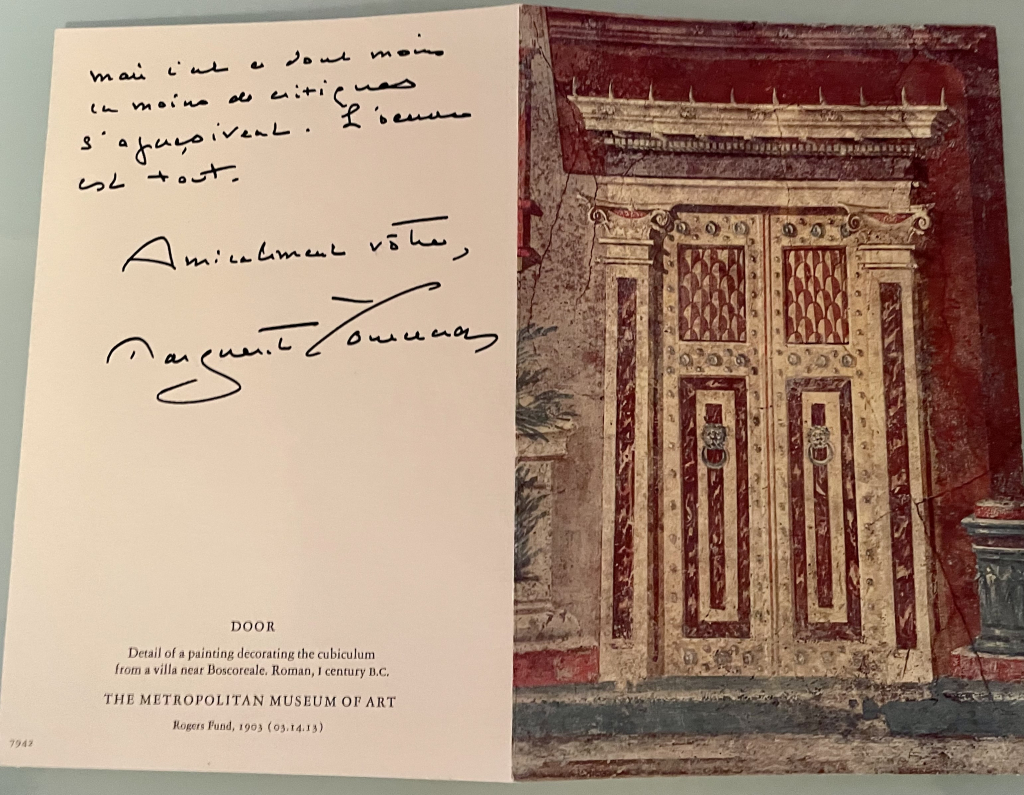 mais c'est ce dont moins
en moins de critiques
s'aperçoivent. L'oeuvre
est tout.
Amicalement vôtre,
Marguerite Yourcenar
DOOR
Detail of a painting decorating the cubiculum
from a villa near Boscoreale. Roman, I century B.C.
THE METROPOLITAN MUSEUM OF ART
Rogers Fund, 1903 (03.14.13)
7942